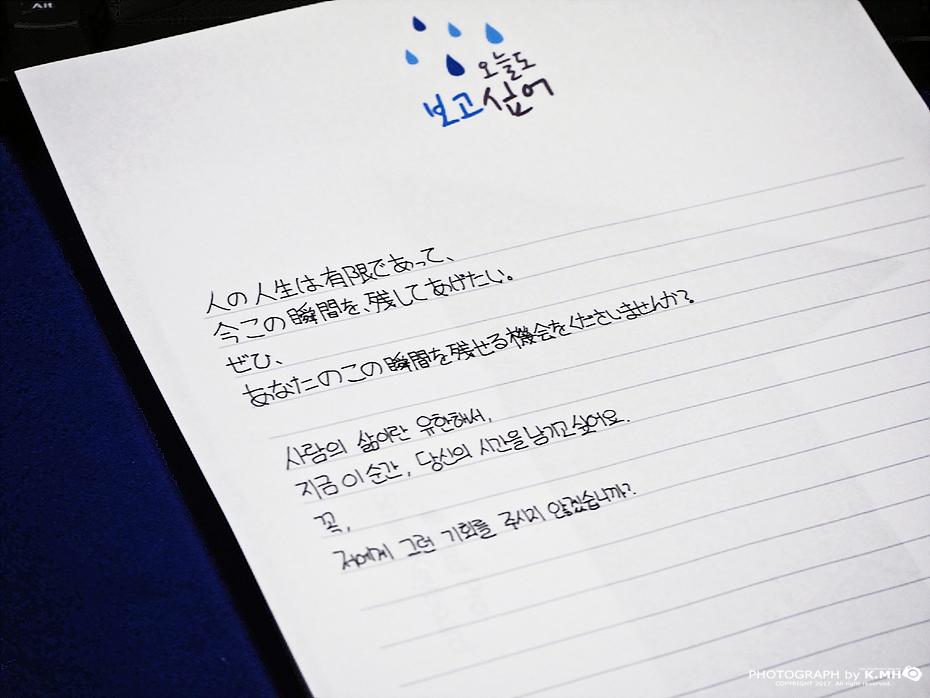 Alt
오늘도
보고싶어
人の人生は有限であって、
今この瞬間を、残してあげたい。
ぜひ、
あなたのこの瞬間を残せる機会をくださいませんか?
사람의 삶이란 유한해서,
지금 이 순간, 당신의 시간을 남기고 싶어요.
꼭,
저에게 그런 기회를 주시지 않겠습니까?
PHOTOGRAPH by K.MH
COPYRIGHT 2017. All right reserved.